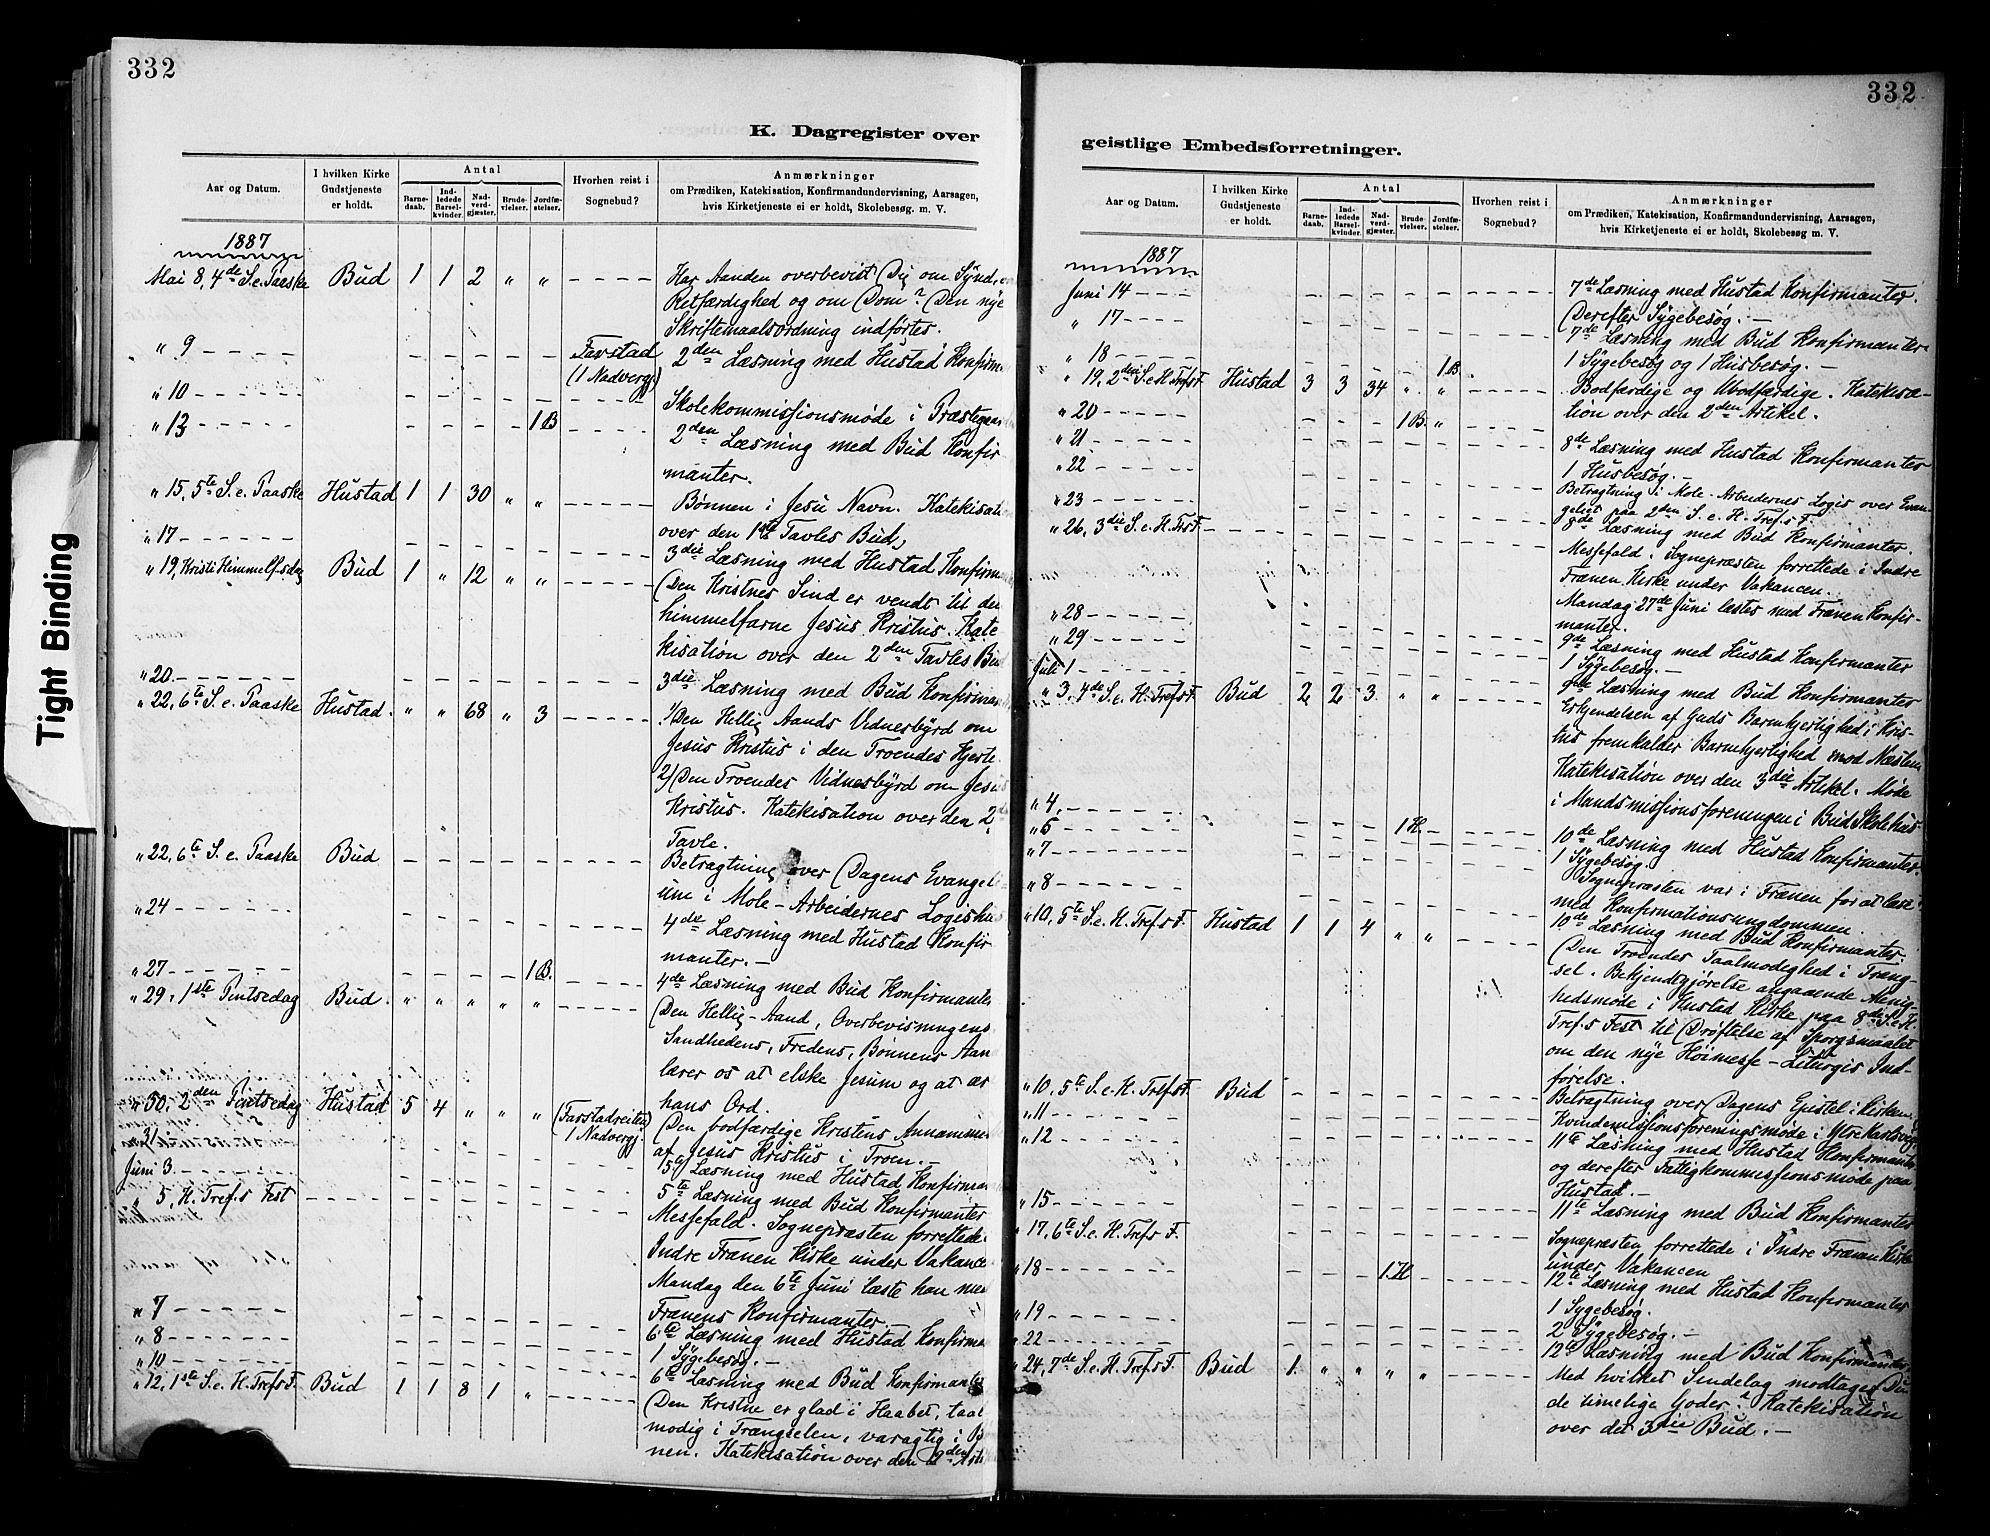 332
K. Dagregister over
Aar og Datum.
I hvilken Kirke Gudstjeneste er holdt.
Antal
Barnedaab.
Indledede Barselkvinder.
Nadverdgjæster.
Brudevielser.
Jordfæstelser.
Hvorhen reist i Sognebud?
Anmærkninger
om Prædiken, Katekisation, Konfirmandundervisning, Aarsagen,
hvis Kirketjeneste ei er holdt, Skolebesøg. m. V.
1887
Mai 8, 4de S. e. Paaske Bud 1 1 2 " " - - - - Har Aanden overbevist Dig om Synd, om
Retfærdighed og om Dom? Den nye
Skriftemaalsordning indførtes.
" 9 - - - - - - - - - Farstad (1 Nadvergj.) 2den Læsning med Hustad Konfirm
" 10 - - - - Skolekommissionsmøde i Præstegaar
" 13 - - - - 1 B 2den Læsning med Bud Konfir
manter.
" 15, 5te S. e. Paaske Hustad 1 1 30 " " - - - - Bønnen i Jesu Navn. Katekisati
over den 1ste Tavles Bud,
" 17 - - - - 3die Læsning med Hustad Konfirm
" 19, Kristi Himmelf.sdag Bud 1 " 12 " " - - - - Den Kristnes Sind er vendt til den
himmelfarne Jesus Kristus. Kate
kisation over den 2den Tavles Bud
" 20 - - - - 3die Læsning med Bud Konfirman
" 22, 6te S. e. Paaske Hustad. " " 68 " 3 - - - - 1/Den Hellig Aands Vidnesbyrd om
Jesus Kristus i den Troendes Hjerte
2/Den Troendes Vidnesbyrd om Jesus
Kristus. Katekisation over den 2d
Tavle.
" 22, 6te S. e. Paaske Bud - - - - Betragtning over Dagens Evangeli
um i Mole-Arbeidernes Logishus
" 24 - - - - 4de Læsning med Hustad Konfir
manter. -
" 27 - - - - 1 B. 4de Læsning med Bud Konfirmanter
" 29, 1ste Pintsedag Bud. " " " " " - - - - Den Hellig-Aand, Overbevisningens
Sandhedens, Fredens, Bønnens Aan
lærer os at elske Jesum og at ær
hans Ord.
" 30, 2den Pintsedag Hustad 5 4 " " " (Farstadreiten 1 Nadvergj. Den bodfærdige Kristens Annamme
af Jesus Kristus i Troen. -
" 31 - - - - 5te Læsning med Hustad Konfirman
Juni 3 - - - - 5te Læsning med Bud Konfirmanter
" 5, H. Tref.s Fest - - - - Messefald. Sognepræsten forrettede
Indre Frænen Kirke under Vakance
Mandag den 6te Juni læste han med
Frænens Konfirmanter.
" 7 - - - - 6te Læsning med Hustad Konfirma
" 8 - - - - 1 Sygebesøg. -
" 10 - - - - 6te Læsning med Bud Konfirmanter
" 12, 1ste S. e. H. Tref.s F. Bud 1 1 8 1 " - - - - Den Kristne er glad i Haabet, taal
modig i Trængselen, varagtig i Bø
nen. Katekisation over den 2den Arti
332
geistlige Embedsforretninger.
Aar og Datum.
I hvilken Kirke Gudstjeneste er holdt.
Antal
Barnedaab.
Indledede Barselkvinder.
Nadverdgjæster.
Brudevielser.
Jordfæstelser.
Hvorhen reist i Sognebud?
Anmærkninger
om Prædiken, Katekisation, Konfirmandundervisning, Aarsagen,
hvis Kirketjeneste ei er holdt, Skolebesøg m. V.
1887
Juni 14 - - - - 7de Læsning med Hustad Konfirmanter.
Derefter Sygebesøg. -
" 17 - - - - 7de Læsning med Bud Konfirmanter
" 18 - - - - 1 B. 1 Sygebesøg og 1 Husbesøg. -
" 19, 2den S. e. H. Tref.s F. Hustad 3 3 34 " " - - - - Bodfærdige og Ubodfærdige. Katekisa-
tion over den 2den Artikel.
" 20 - - - - 1 B. "
" 21 - - - - 8de Læsning med Hustad Konfirmanter
" 22 - - - - 1 Husbesøg. -
Betragtning i Mole-Arbeidernes Logis over Evan
geliet paa 2den S. e. H. Tref.s F.
" 23 - - - - 8de Læsning med Bud Konfirmanter.
" 26, 3die S. e. H. Tr.s F. - - - - Messefald. Sognepræsten forrettede i Indre
Frænen Kirke under Vakancen.
Mandag 27de Juni læstes med Frænen Konfir-
manter.
" 28 - - - - 9de Læsning med Hustad Konfirmanter
" 29 - - - - 1 Sygebesøg. -
Juli 1 - - - - 9de Læsning med Bud Konfirmanter
" 3, 4de S. e. H. Tref.s F. Bud 2 2 3 " " - - - - Erkjendelsen af Guds Barmhjertighed i Kris-
tus fremkalder Barmhjertighed mod Næsten
Katekisation over den 3die Artikel. Møde
i Mandsmissionsforeningen i Bud Skolehus
" 4 - - - -
" 5 - - - - 1 H. - 10de Læsning med Hustad Konfirmanter.
" 7 - - - - 1 Sygebesøg.
Sognepræsten var i Frænen for at læse
med Konfirmationsungdommen.
" 8 - - - - 10de Læsning med Bud Konfirmanter.
" 10, 5te S. e. H. Tref.s F. Hustad 1 1 4 " " - - - - Den Troendes Taalmodeghed i Træng-
sel. Bekjendtgjørelse angaaende Menig-
hedsmøde i Hustad Kirke paa 8de S. e. H.
Tref.s Fest til Drøftelse af Spørgsmaalet
om den nye Høimesse-Liturgis Ind-
førelse.
" 10, 5te S. e. H. Tref.s F. Bud - - - - Betragtning over Dagens Epistel i Kirken.
" 11 - - - - Kvindemissionsforeningsmøde i Ytre
" 12 - - - - 11te Læsning med Hustad Konfirmanter
og derefter Fattigkommissionsmøde paa
Hustad. -
" 15 - - - - 11te Læsning med Bud Konfirmanter
" 17, 6te S. e. H. Tref.s F. - - - - Sognepræsten forrettede i Indre Frænen Kirke
under Vakancen
" 18 - - - - 1. H - 12te Læsning med Hustad Konfirmanter
1 Sygebesøg.
" 19 - - - - 2 Sygebesøg. -
" 22 - - - - 12te Læsning med Bud Konfirmanter
" 24, 7de S. e. H. Tref.s F. Bud 1. " " " " - - - - Med hvilket Sindelag modtager Du
de timelige Goder? Katekisation
over det 3die Bud. -
Tight Binding